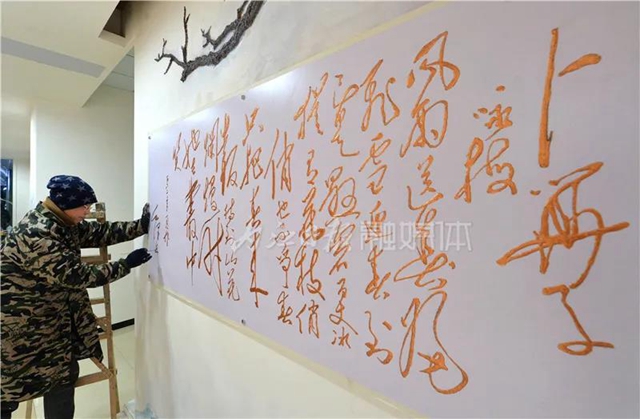 卜算子
咏梅
风雨送春归
飞雪迎春到
已是悬崖百丈冰
犹有花枝俏
俏也不争春
只把春来
报待到山花
烂漫时
她在丛中
笑
融媒体